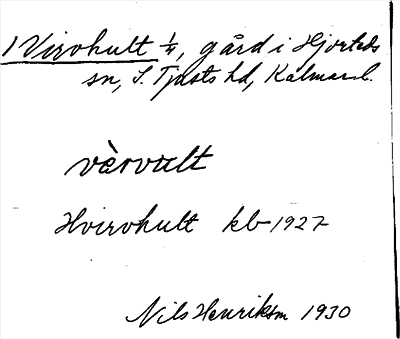 1 Virvhult 1/4, gård i Hjorteds
sn, S. Tjusts hd, Kalmar l.
vèrvult
Hvirvhult kb 1927
Nils Henrikson 1930